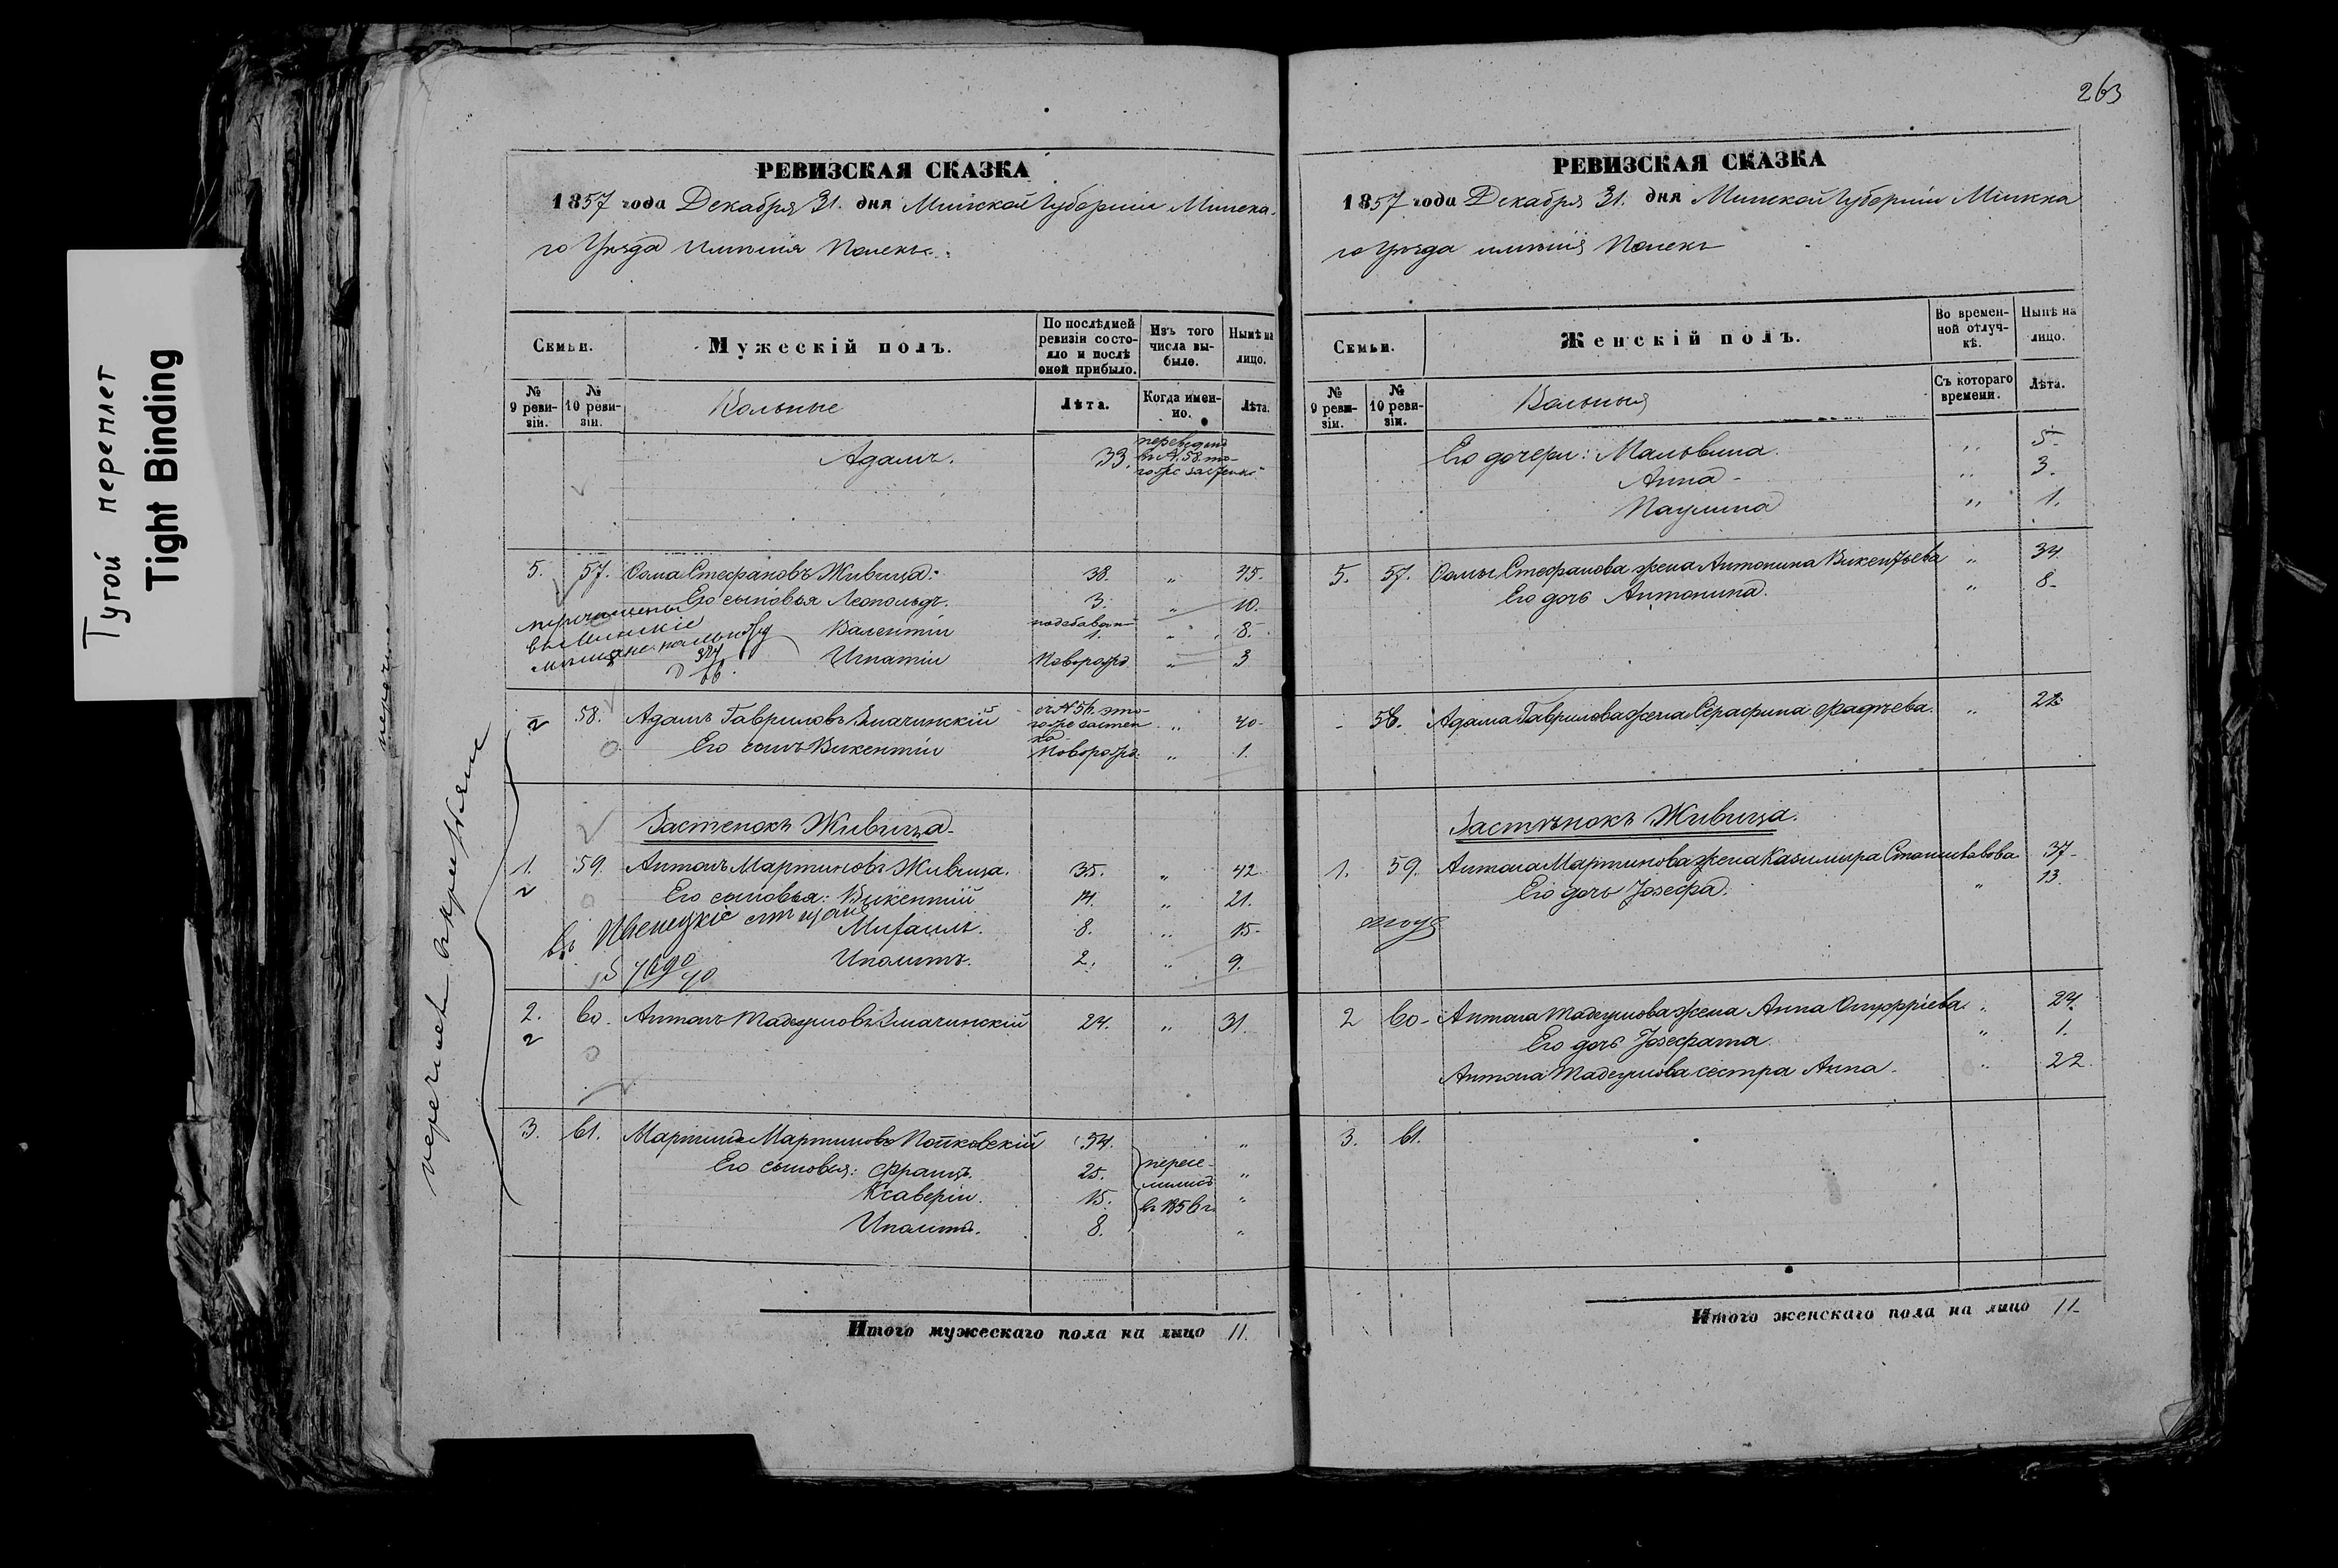 Тугой переплет
Tight Binding
263
РЕВИЗСКАЯ СКАЗКА
1857 года Декабря 31. дня Минской Губерніи Минска-
го Уѣзда Имѣнія
Семьи.
Мужескій полъ.
По послѣдней ревизіи состояло и послѣ оной прибыло.
Изъ того числа выбыло.
Нынѣ на лицо.
№ 9 ревизіи.
№ 10 ревизіи.
Вольные
Лѣта.
Когда именно.
Лѣта.
Адамъ. 33. переведенъ въ № 58 того же застенка
5. 57. Ѳома Стефановъ Живица. 38. „ 45.
Его сыновья Леопольдъ. 3. „ 10.
Валентій 1. „ 8.
Игнатій Новорожд. „ 3
перечислены
въ Минскіе
мещане
58. Адамъ Гавриловъ съ № 56 того же застенка „ 40
Его сынъ Викентій Новорожд. „ 1.
Застенокъ Живица
1. 59. Антонъ Мартиновъ Живица. 35. „ 42
Его сыновья: Викентій 14. „ 21.
Михаилъ. 8. „ 15
Ипалитъ. 2. „ 9.
2. 60. Антонъ Тадеушовъ 24. „ 31.
3. 61. Мартинъ Мартиновъ 54. „
Его сыновья: Францъ. 25. „
Ксаверій. 15. „
Ипалитъ. 8. „
переселились въ 1856 г.
Итого мужескаго пола на лицо 11.
РЕВИЗСКАЯ СКАЗКА
1857 года Декабря 31. дня Минской Губерніи Минска
го Уѣзда имѣнія
Семьи.
Женскій полъ.
Во временной отлучкѣ.
Нынѣ на лицо.
№ 9 ревизіи.
№ 10 ревизіи.
Вольныя
Съ котораго времени.
Лѣта.
Его дочери: Мальвина. „ 5
Анна „ 3.
Паулина „ 1.
5. 57. Ѳомы Стефанова жена Антонина Викентьева „ 34
Его дочь Антонина. „ 8
58. Адама Гаврилова жена Серафина Фадѣева. „
Застѣнокъ Живица.
1. 59. Антона Мартинова жена Казимира Станиславова 37
Его дочь Іозефа. „ 13.
2 60 Антона Тадеушова жена Анна Онуфріева. „ 24.
Его дочь Іозефата. „ 1.
Антона Тадеушова сестра Анна „ 22.
3. 61.
Итого женскаго пола на лицо 11